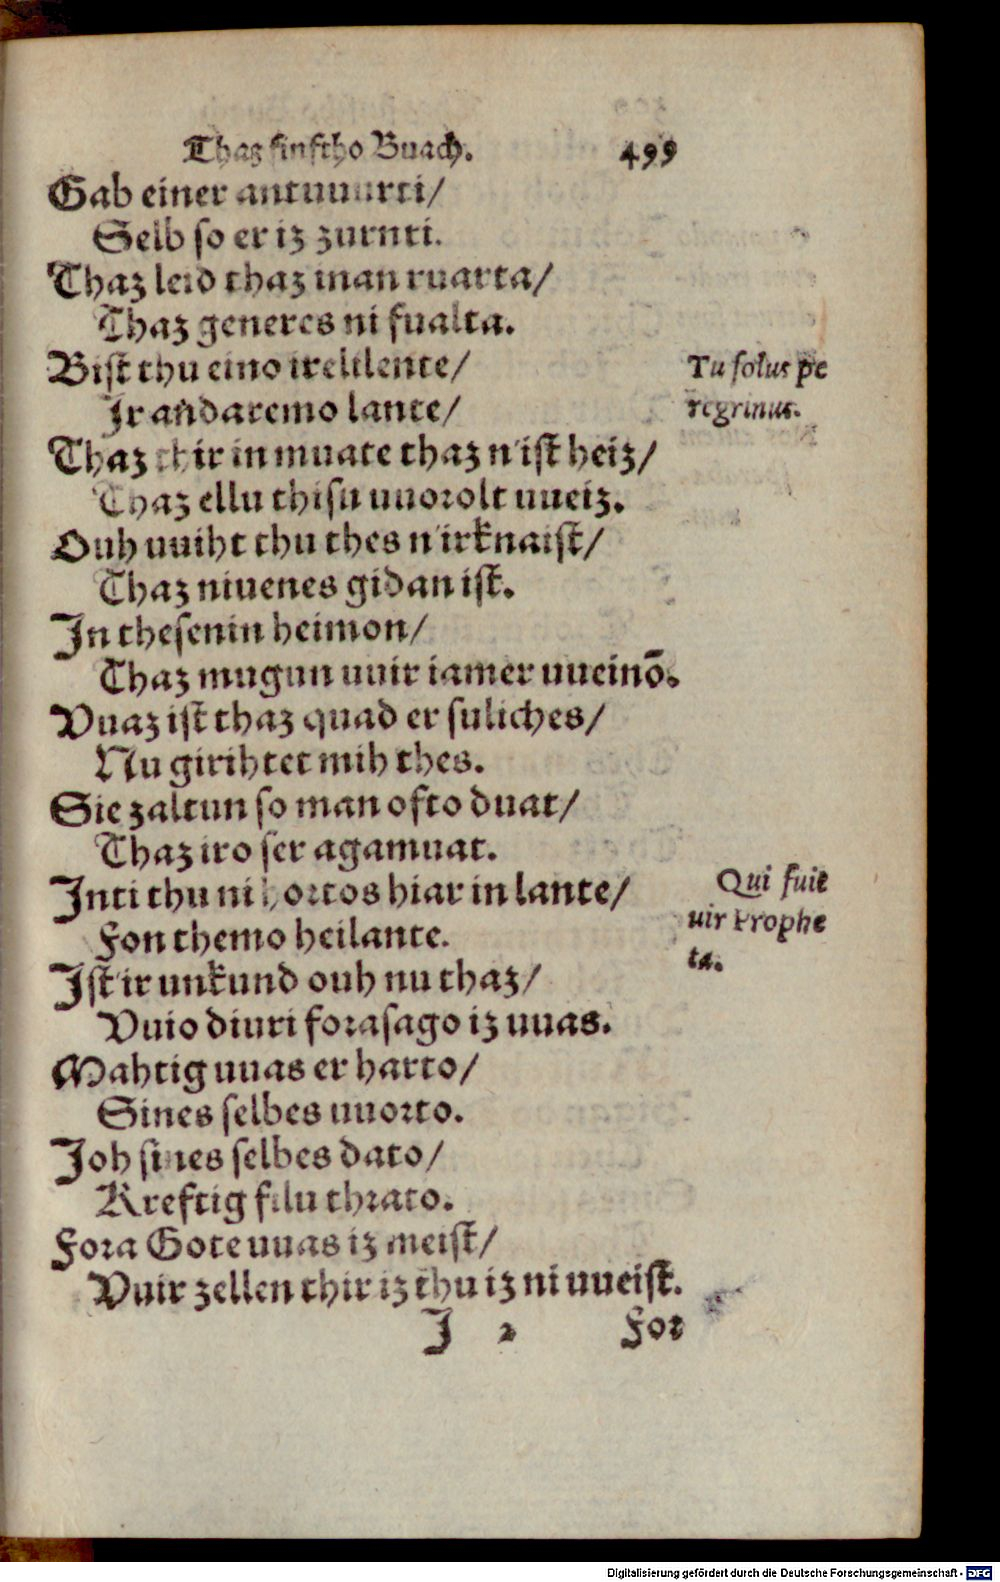 Thaz finftho Buach. 499
Gab einer antuuurti/
Selb so er iz zurnti.
Thaz leid thaz man ruarta/
Thaz generes ni fualta.
Bist thu eino irelilente/
Tu solus pe
Ir andaremo lante/
regrinus.
Thaz thir in muate thaz n'ist heiz/
Thaz ellu thisu uuorolt uueiz.
Ouh uuiht thu thes n'irknaist/
Thaz niuenes gidan ist.
In thesenin heimon/
Thaz mugun uuir iamer uueinō.
Vuaz ist thaz quad er suliches/
Nu girihtet mih thes.
Sie zaltun so man ofto duat/
Thaz iro ser agamuat.
Inti thu ni hortos hiar in lante/
Qui fuit
Fon themo heilante.
uir Prophe
Ist ir unkund ouh nu thaz/
ta.
Vuio diuri forasago iz uuas.
Mahtig uuas er harto/
Sines selbes uuorto.
Joh sines selbes dato/
Kreftig filu thrato.
Fora Gote uuas iz meist/
Vuir zellen thir iz thu iz ni uueist.
I 2 For
Digitalisierung gefördert durch die Deutsche Forschungsgemeinschaft - DFG